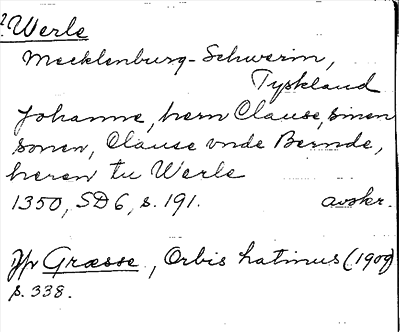 1. Werle
Mecklenburg-Schwerin,
Tyskland
Johanne, hern Clause, sinen
sonen, Clause vnde Bernde,
heren tu Werle
1350, SD 6, s. 191. avskr.
Jfr Græsse, Orbis latinus (1909)
s. 338.